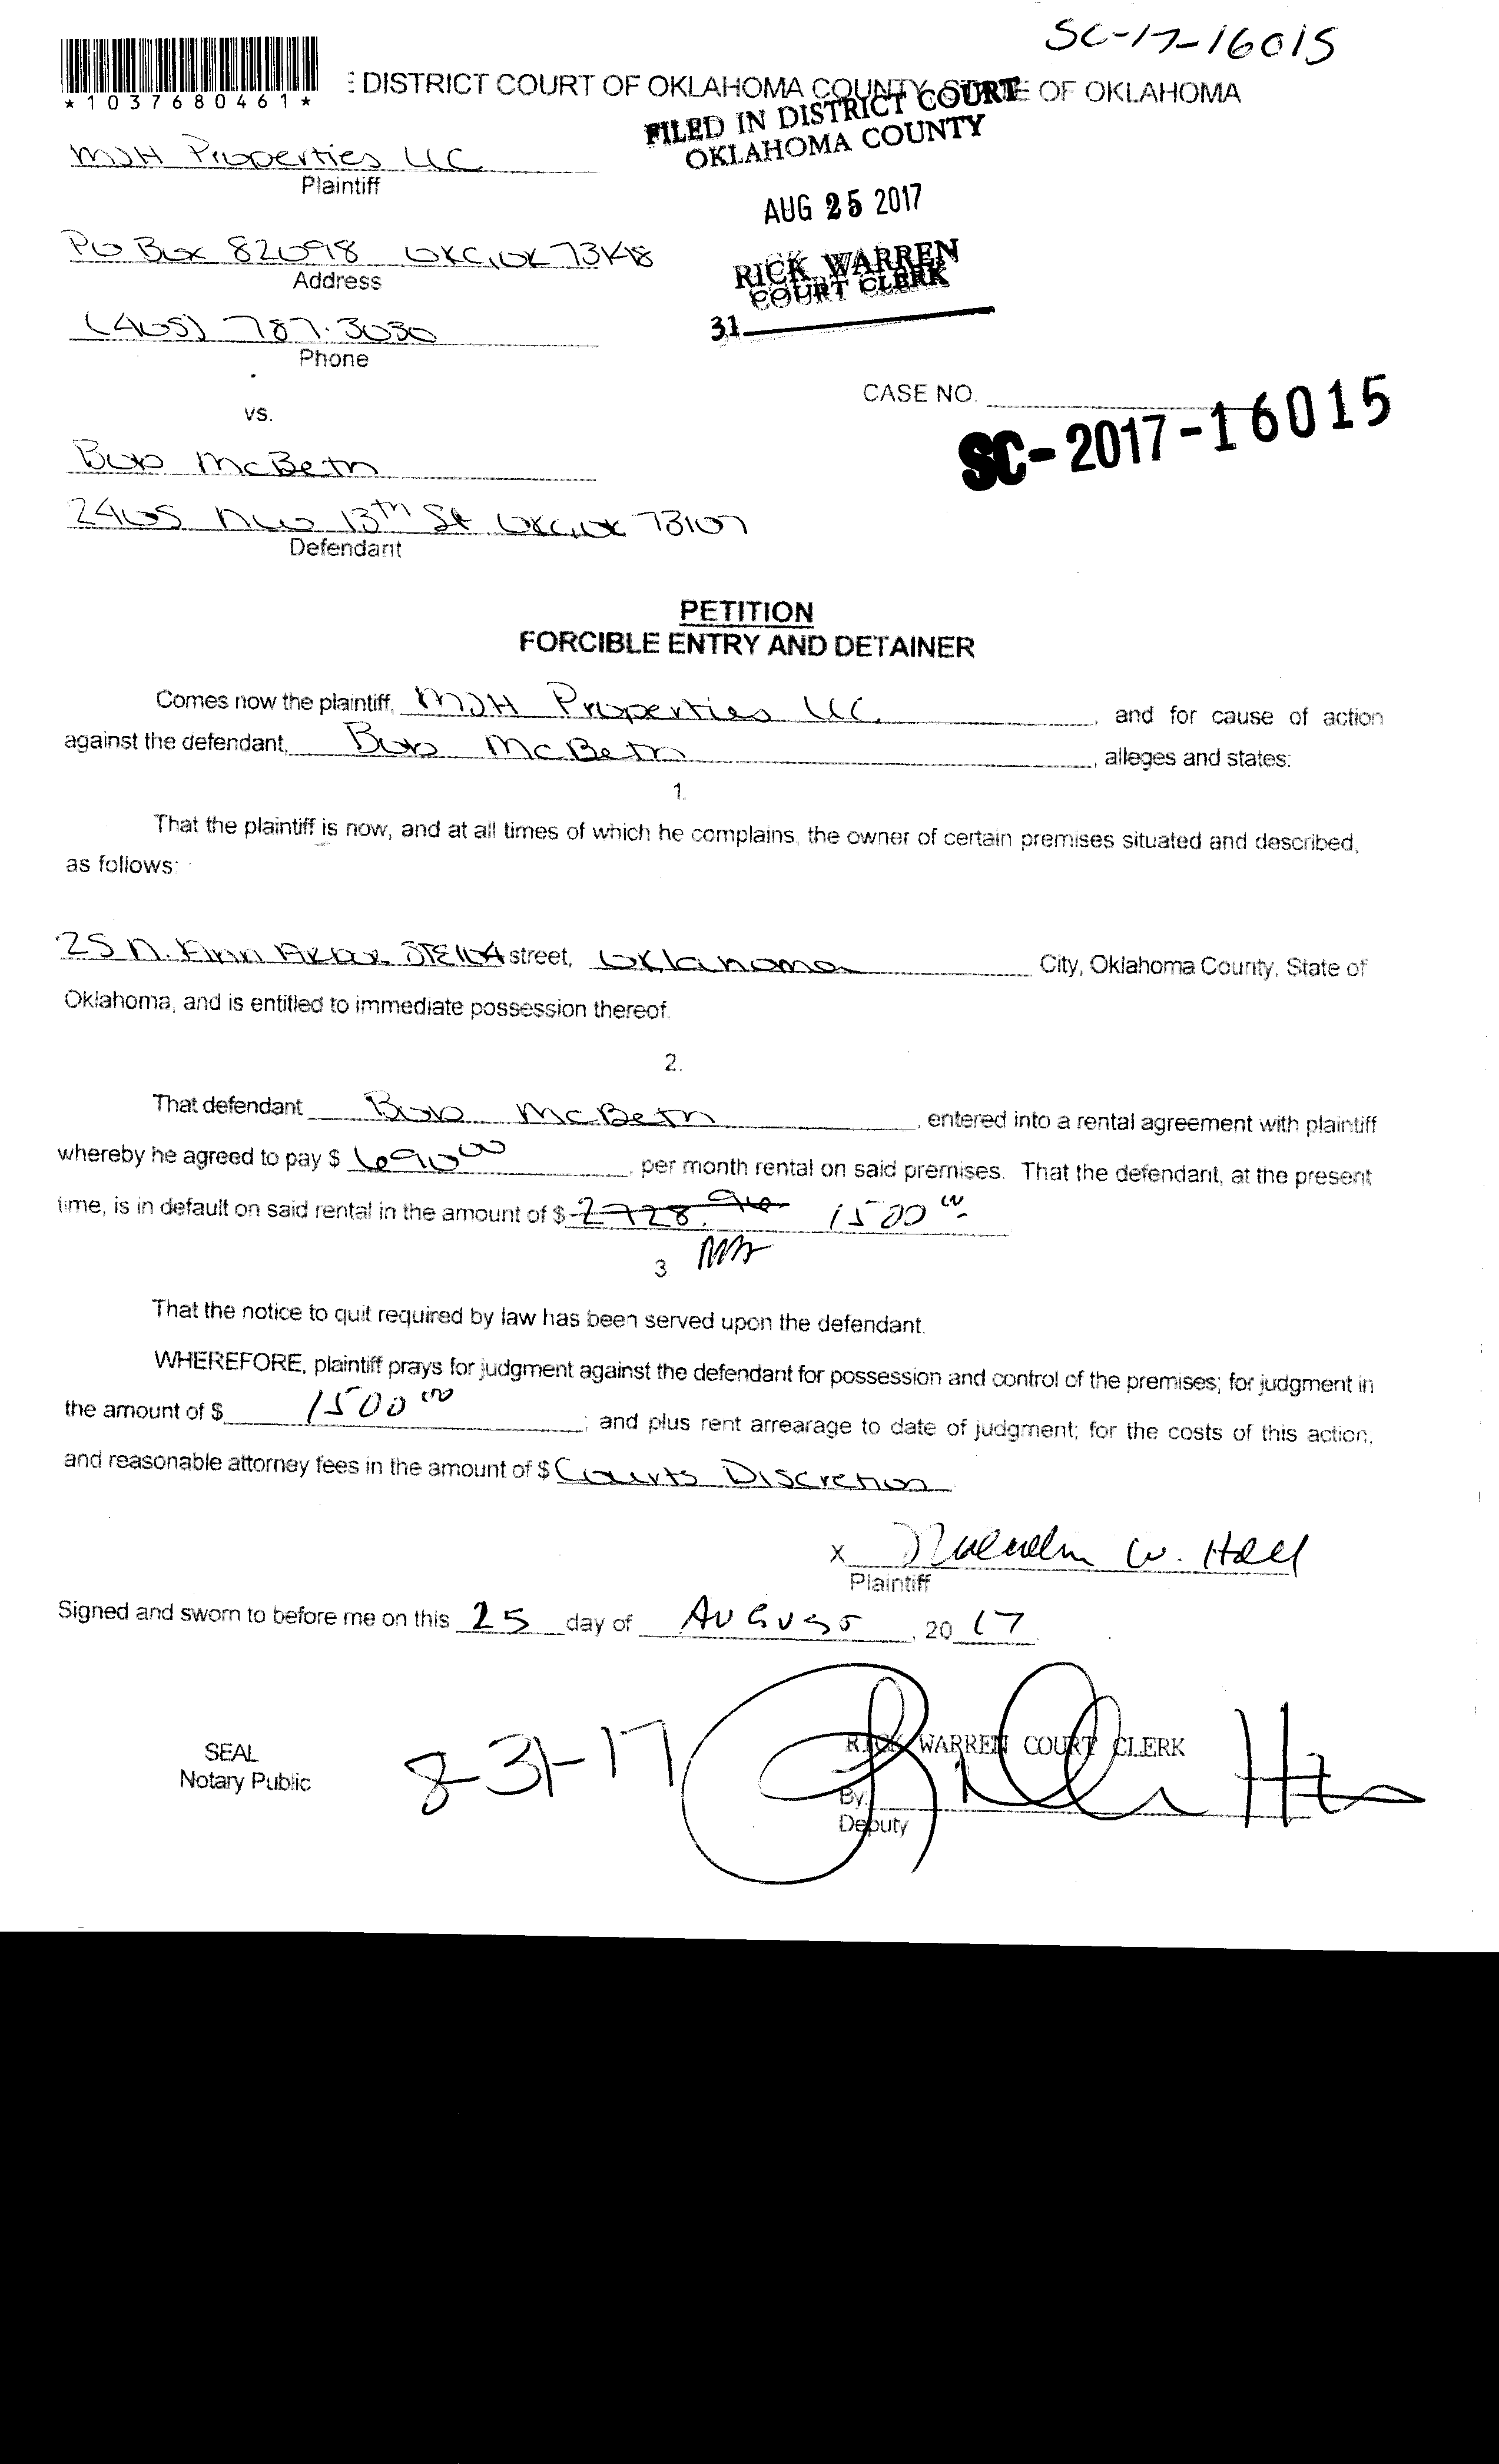 SC-17-16015
*1037680461*
E DISTRICT COURT OF OKLAHOMA COUNTY, STATE OF OKLAHOMA
FILED IN DISTRICT COURT
OKLAHOMA COUNTY
MJH Properties LLC
Plaintiff
AUG 25 2017
PO Box 82098 OKC, OK 73148
Address
RICK WARREN
COURT CLERK
31
(405) 787.3030
Phone
CASE NO.
SC-2017-16015
vs.
Bob McBeth
2405 NW 13th St OKC, OK 73107
Defendant
PETITION
FORCIBLE ENTRY AND DETAINER
Comes now the plaintiff, MJH Properties LLC, and for cause of action
against the defendant, Bob McBeth, alleges and states:
1.
That the plaintiff is now, and at all times of which he complains, the owner of certain premises situated and described,
as follows:
25 N. Ann Arbor STE 104 street, Oklahoma City, Oklahoma County, State of
Oklahoma, and is entitled to immediate possession thereof.
2.
That defendant Bob McBeth, entered into a rental agreement with plaintiff
whereby he agreed to pay $ 690.00, per month rental on said premises. That the defendant, at the present
time, is in default on said rental in the amount of $ 2728. 1500 00
3.
That the notice to quit required by law has been served upon the defendant.
WHEREFORE, plaintiff prays for judgment against the defendant for possession and control of the premises; for judgment in
the amount of $ 1500 00; and plus rent arrearage to date of judgment; for the costs of this action;
and reasonable attorney fees in the amount of $ Courts Discretion
x Malcolm W. Hall
Plaintiff
Signed and sworn to before me on this 25 day of August, 20 17.
SEAL
Notary Public
8-31-17
RICK WARREN COURT CLERK
By:
Deputy